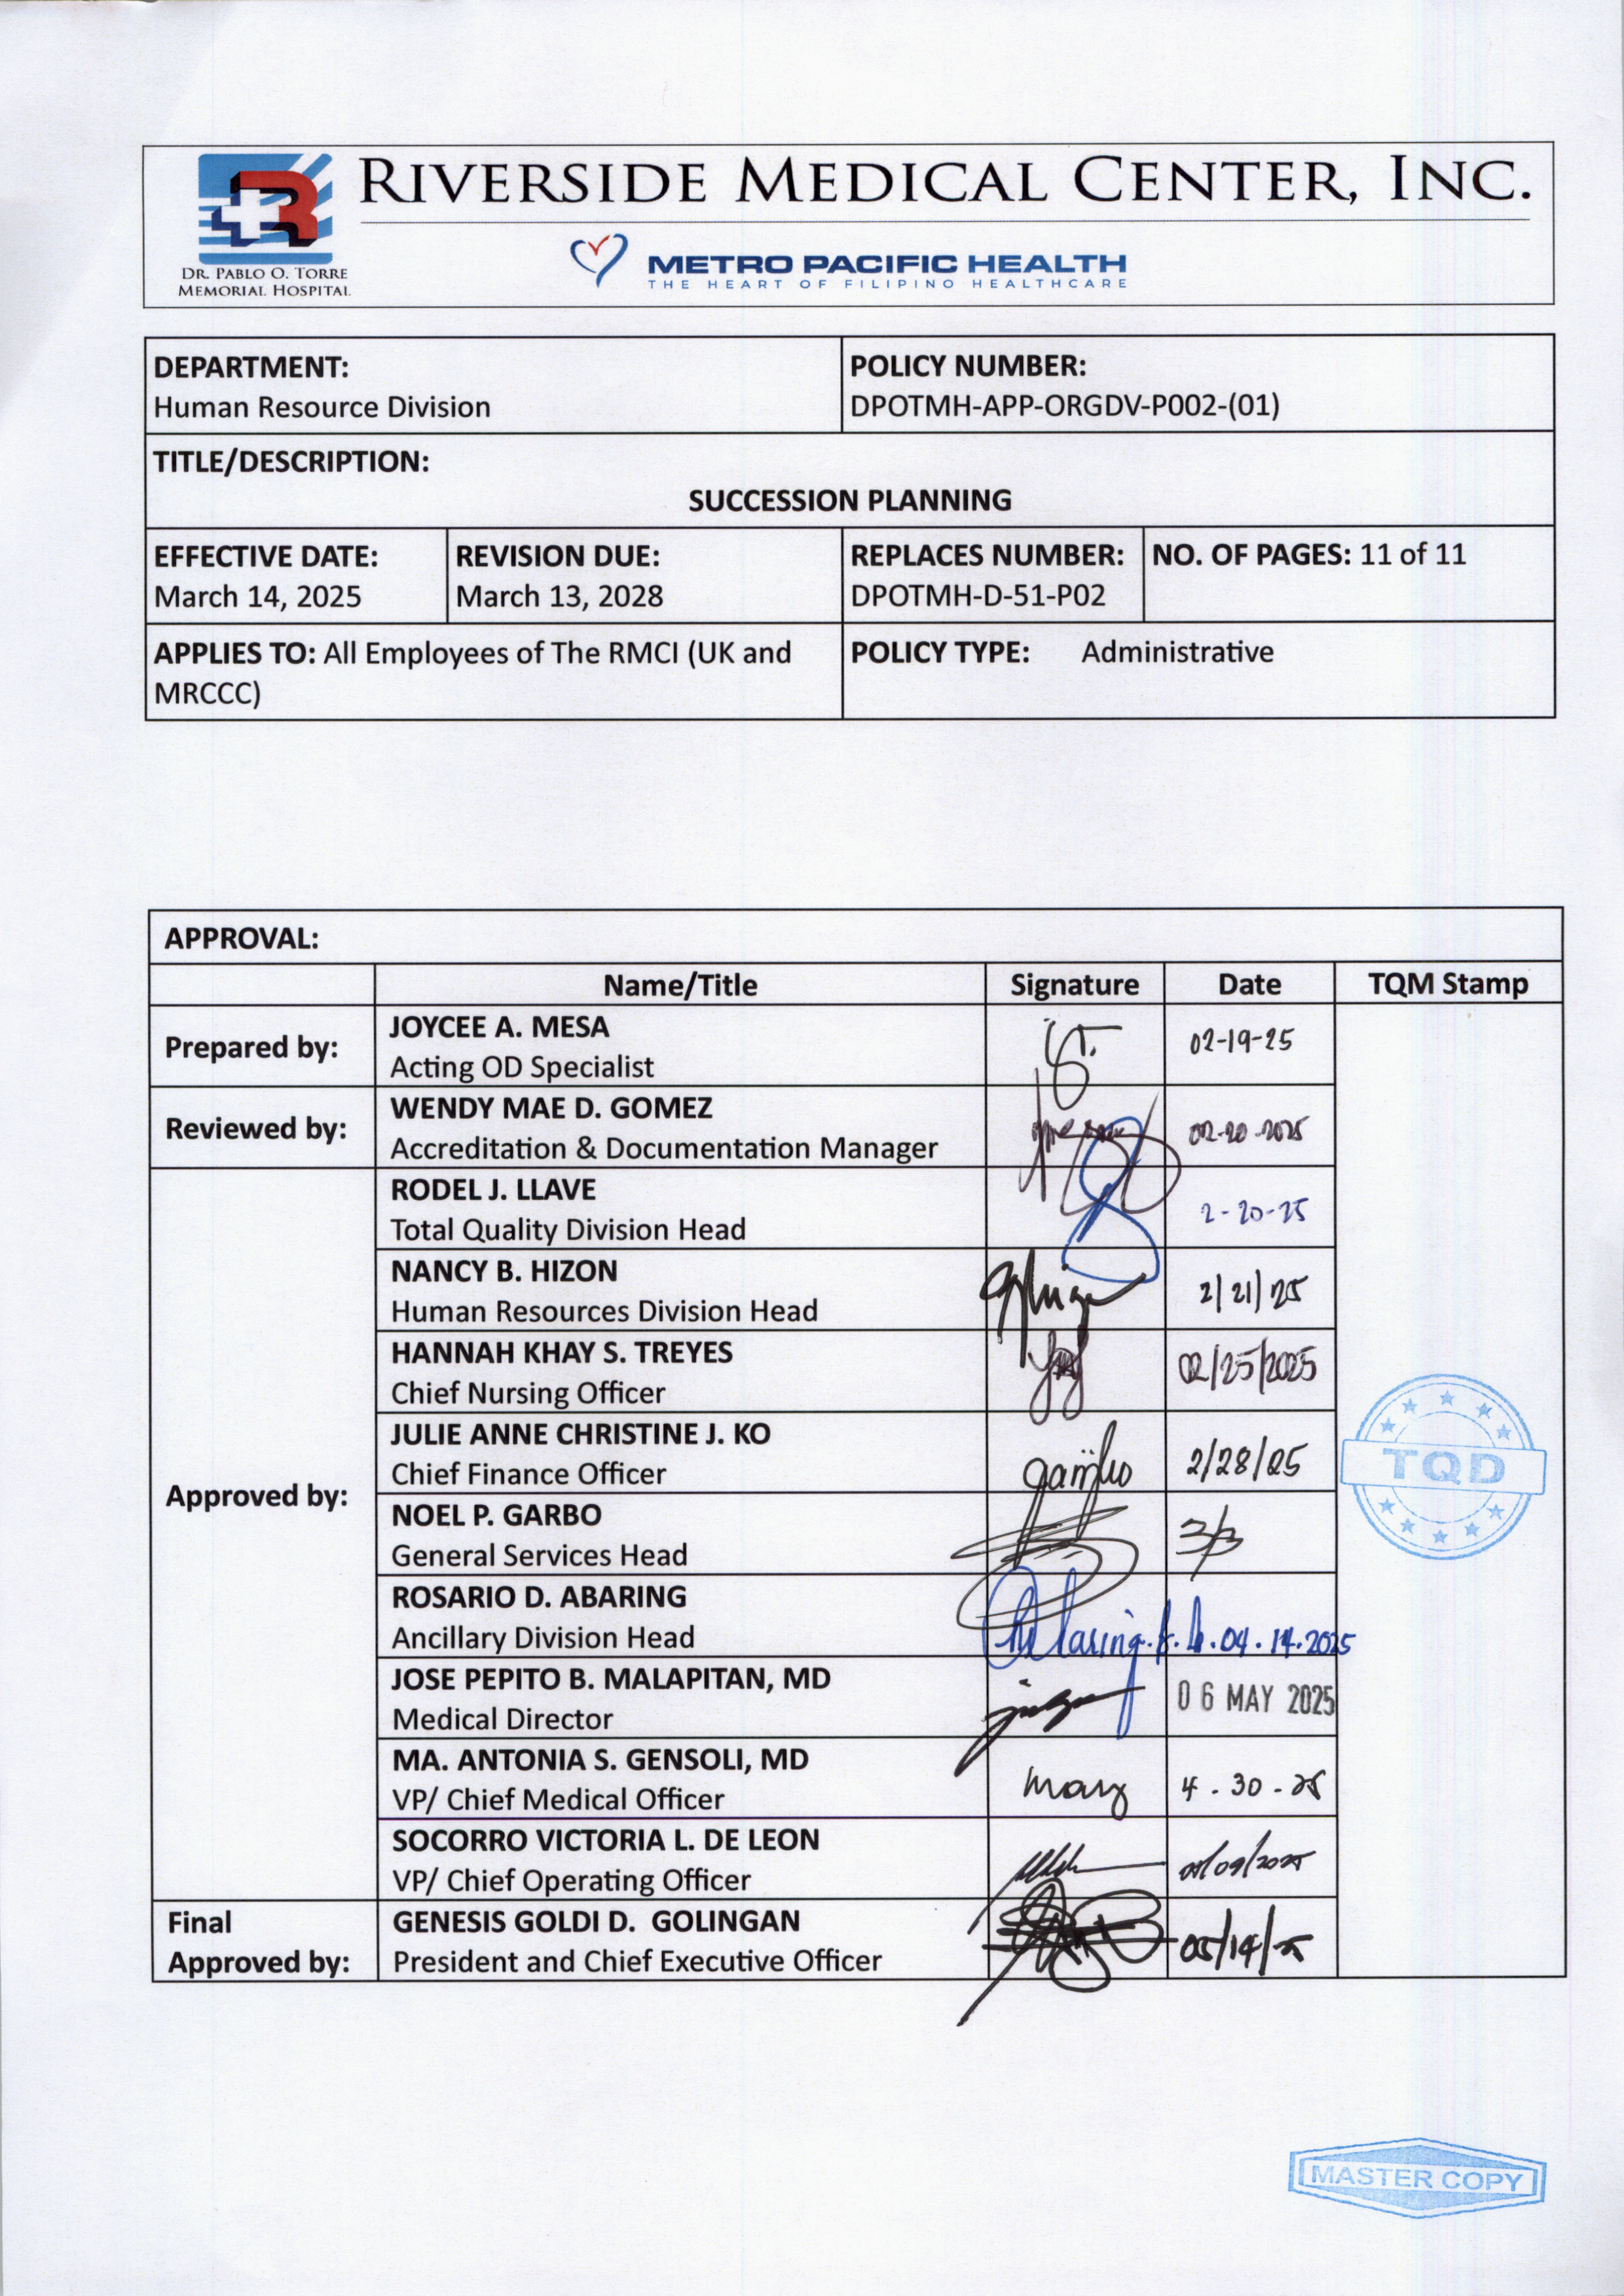 RIVERSIDE MEDICAL CENTER, INC.
DR. PABLO O. TORRE
MEMORIAL HOSPITAL
METRO PACIFIC HEALTH
THE HEART OF FILIPINO HEALTHCARE
DEPARTMENT:
Human Resource Division
POLICY NUMBER:
DPOTMH-APP-ORGDV-P002-(01)
TITLE/DESCRIPTION:
SUCCESSION PLANNING
EFFECTIVE DATE:
March 14, 2025
REVISION DUE:
March 13, 2028
REPLACES NUMBER:
DPOTMH-D-51-P02
NO. OF PAGES: 11 of 11
APPLIES TO: All Employees of The RMCI (UK and
MRCCC)
POLICY TYPE: Administrative
APPROVAL:
Name/Title Signature Date TQM Stamp
Prepared by:
JOYCEE A. MESA
Acting OD Specialist
02-19-25
Reviewed by:
WENDY MAE D. GOMEZ
Accreditation & Documentation Manager
02-20-2025
Approved by:
RODEL J. LLAVE
Total Quality Division Head
2-20-25
NANCY B. HIZON
Human Resources Division Head
2/21/25
HANNAH KHAY S. TREYES
Chief Nursing Officer
02/25/2025
JULIE ANNE CHRISTINE J. KO
Chief Finance Officer
2/28/25
NOEL P. GARBO
General Services Head
3/3
ROSARIO D. ABARING
Ancillary Division Head
04.14.2025
JOSE PEPITO B. MALAPITAN, MD
Medical Director
06 MAY 2025
MA. ANTONIA S. GENSOLI, MD
VP/ Chief Medical Officer
4.30.25
SOCORRO VICTORIA L. DE LEON
VP/ Chief Operating Officer
Final
Approved by:
GENESIS GOLDI D. GOLINGAN
President and Chief Executive Officer
05/14/25
TQD
MASTER COPY